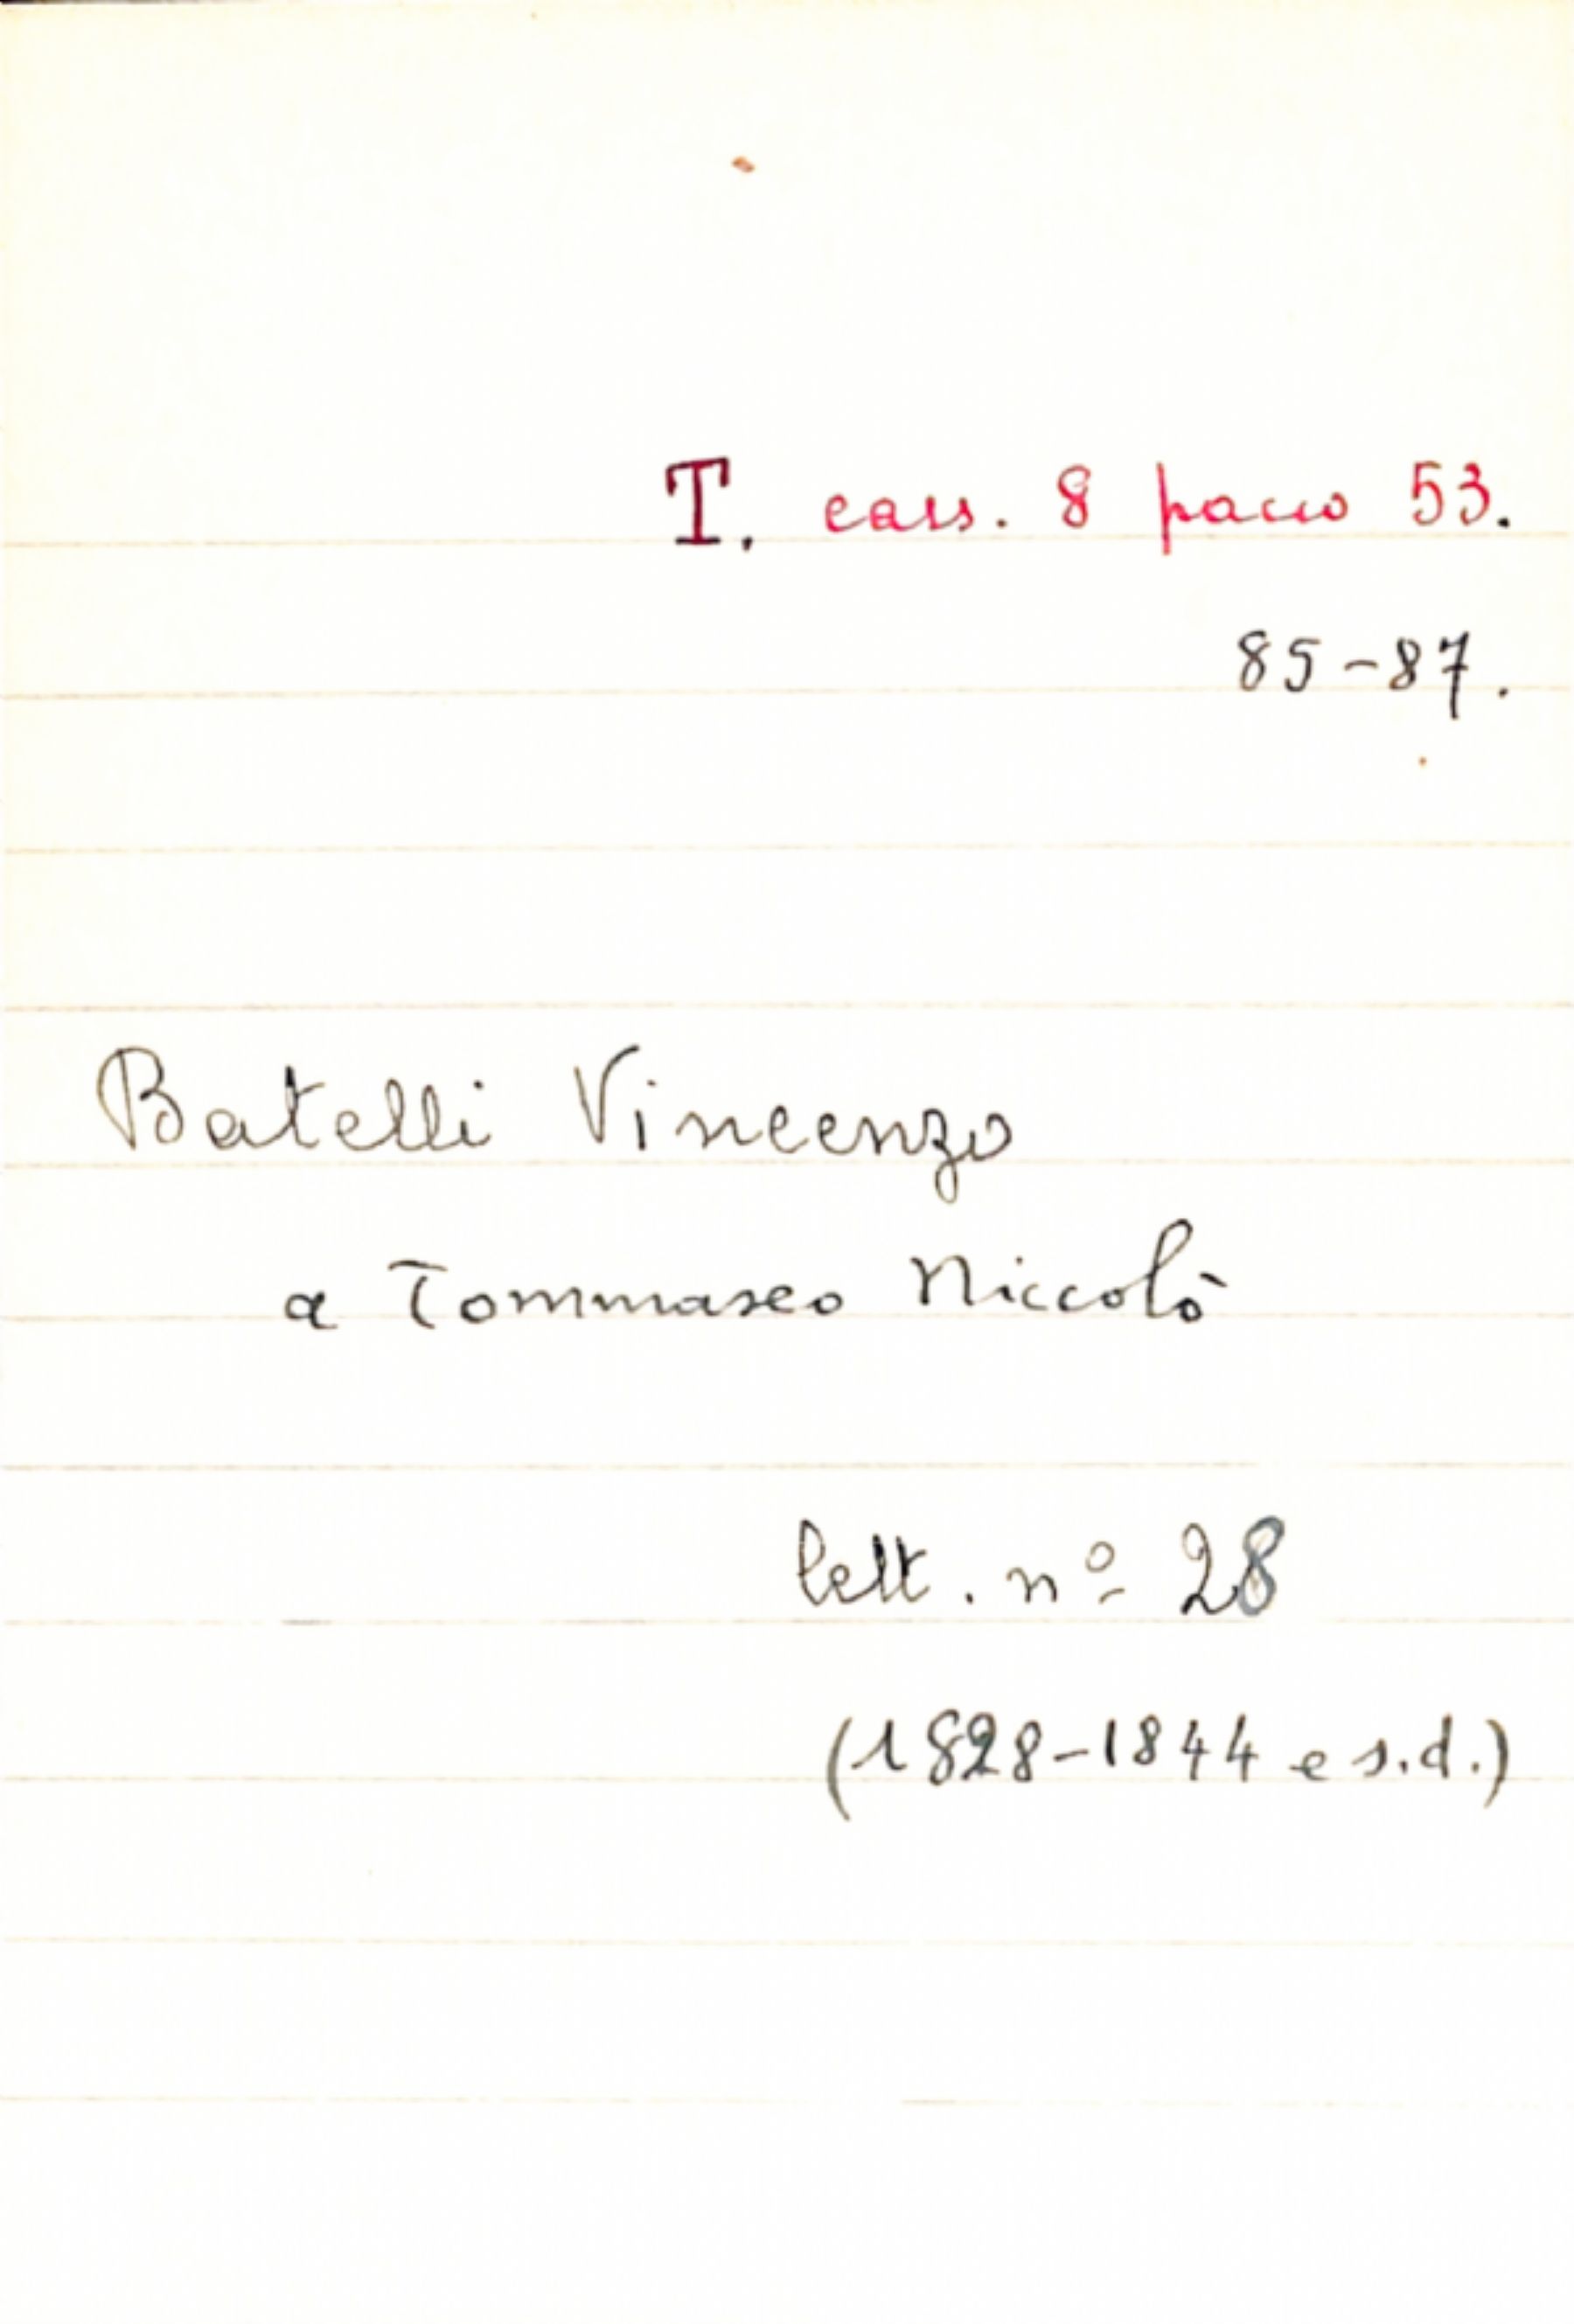 T. cass. 8 pacco 53.
85-87.
Batelli Vincenzo
a Tommaseo Niccolò
lett. nº 28
(1828-1844 e s.d.)